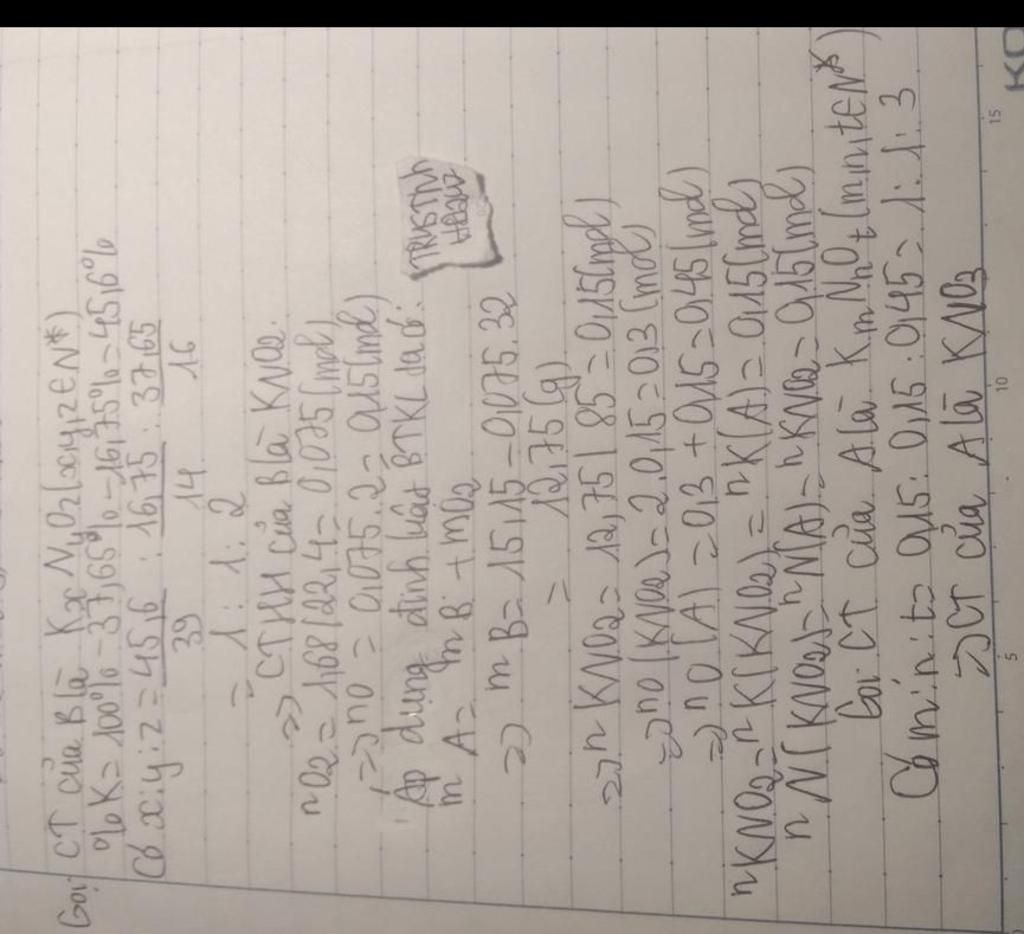 Gọi: CT của B là KxNyOz (x,y,z∈N*)
%K= 100% - 37,65% - 16,75% = 45,6%
Có x:y:z = 45,6/39 : 16,75/14 : 37,65/16
= 1: 1: 2
=> CTHH của B là KNO2.
nO2 = 1,68/22,4 = 0,075 (mol)
=> nO = 0,075.2 = 0,15 (mol)
Áp dụng định luật BTKL ta có:
mA = mB + mO2
=> mB = 15,15 - 0,075.32
= 12,75 (g)
=> nKNO2 = 12,75/85 = 0,15 (mol)
=> nO (KNO2) = 2.0,15 = 0,3 (mol)
=> nO (A) = 0,3 + 0,15 = 0,45 (mol)
nKNO2 = nK(KNO2) = nK(A) = 0,15 (mol)
nN(KNO2) = nN(A) = nKNO2 = 0,15 (mol)
Gọi CT của A là KmNnOt (m,n,t∈N*)
Có m:n:t = 0,15: 0,15: 0,45 = 1: 1: 3
=> CT của A là KNO3
5 10 15
KO